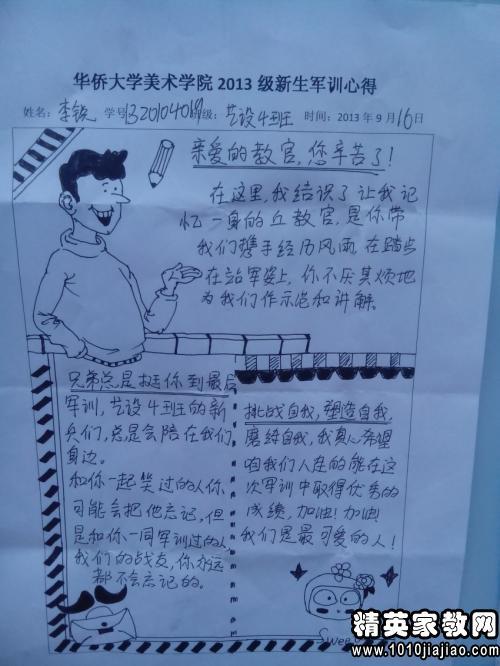 华侨大学美术学院 2013 级新生军训心得
姓名: 李锐 学号 级: 艺设4班 时间: 2013 年 9 月 16 日
亲爱的教官,您辛苦了!
在这里,我结识了让我记
忆一身的丘教官,是你带
我们携手经历风雨,在踏步
在站军姿上,你不厌其烦地
为我们作示范和讲解。
兄弟总是挺你到最后
军训,艺设4班的新
兵们,总是会陪在我们
身边。
和你一起笑过的人你
可能会把他忘记,但
是和你一同军训过的人
我们的战友,你永远
都不会忘记的。
挑战自我,塑造自我,
磨练自我,我真心希望
咱我们人在的能在这
次军训中取得优秀的
成绩,加油!加油!
我们是最可爱的人!
精英家教网
www.1010jiajiao.com